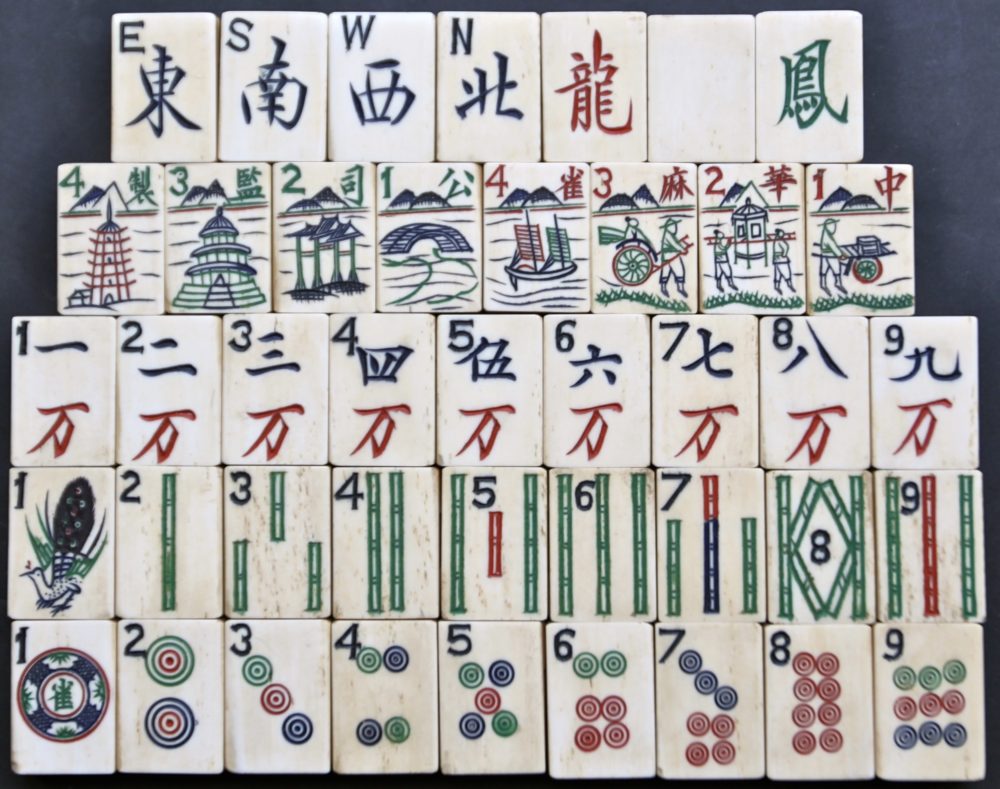 E 東 S 南 W 西 N 北 龍 鳳
4 製 3 監 2 司 1 公 4 雀 3 麻 2 華 1 中
1 一 2 二 3 三 4 四 5 伍 6 六 7 七 8 八 9 九
万 万 万 万 万 万 万 万 万
1 2 3 4 5 6 7 8 9
1 2 3 4 5 6 7 8 9
雀